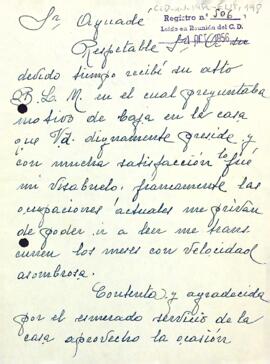 Sr Aguade
Registro nº 506
Leído en Reunión del C.D.
1956
Respetable Sr
debido tiempo recibí su atto
B. L. M. en el cual preguntaba
motivo de baja en la casa
que Vd. dignamente preside y
con mucha satisfacción fué
mi visabuelo, francamente las
ocupaciones actuales me privan
de poder ir a leer me trans
curren los meses con velocidad
asombrosa.
Contenta y agradecida
por el esmerado servicio de la
casa aprovecho la ocasión